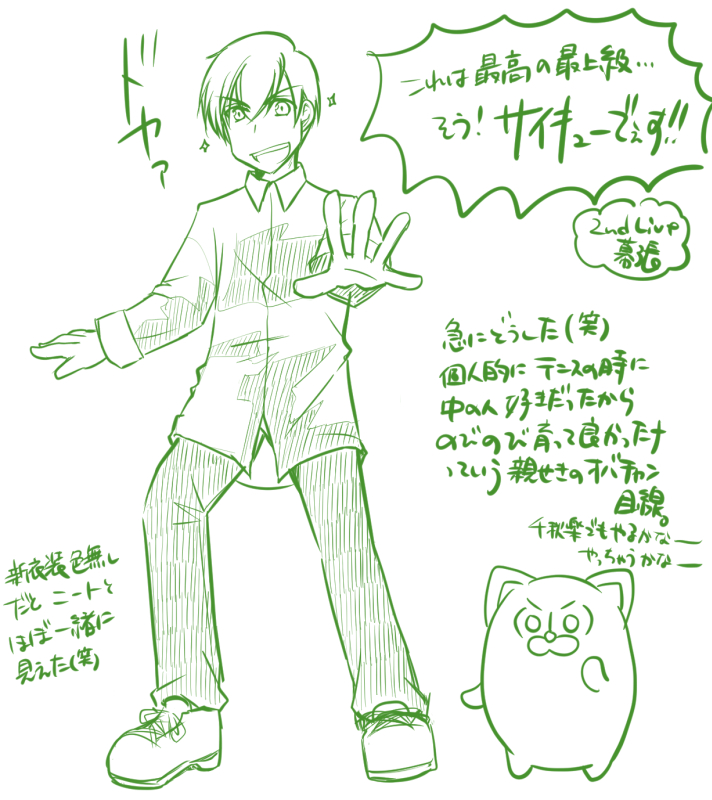 これは最高の最上級…
そう! サイキューでぇす!!
ドヤァ
2nd Live
幕張
急にどうした(笑)
個人的にテニスの時に
中の人好きだったから
のびのび育って良かったナ
っていう親せきのオバチャン
目線。
千秋楽でもやるかなー
やっちゃうかなー
新衣装色無し
だと ニートと
ほぼ一緒に
見えた(笑)